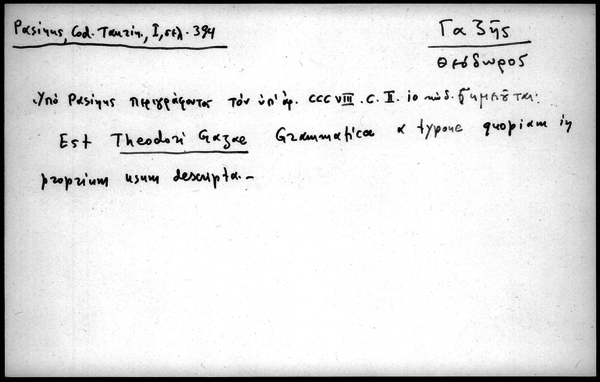 Pasinus, Cod. Taurin., I, σελ. 394
Γαζῆς
Θεόδωρος
Ὑπὸ Pasinus περιγράφοντος τὸν ὑπ' ἀρ. CCCVIII. C. II. 10 κώδ. σημειοῦται:
Est Theodori Gazae Grammatica a typone quopiam in
proprium usum descripta.–